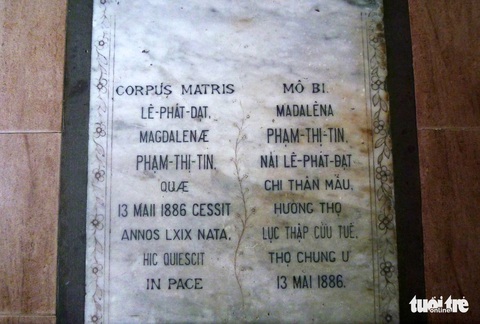 CORPUS MATRIS
LÊ-PHÁT-ĐẠT,
MAGDALENÆ
PHẠM-THỊ-TIN,
QUÆ
13 MAII 1886 CESSIT
ANNOS LXIX NATA,
HIC QUIESCIT
IN PACE
MÔ BI.
MADALÊNA
PHẠM-THỊ-TIN,
NÀI LÊ-PHÁT-ĐẠT
CHI THÂN MẪU,
HƯỞNG THỌ
LỤC THẬP CỬU TUẾ,
THỌ CHUNG Ư
13 MAI 1886.
tuổi trẻ
online